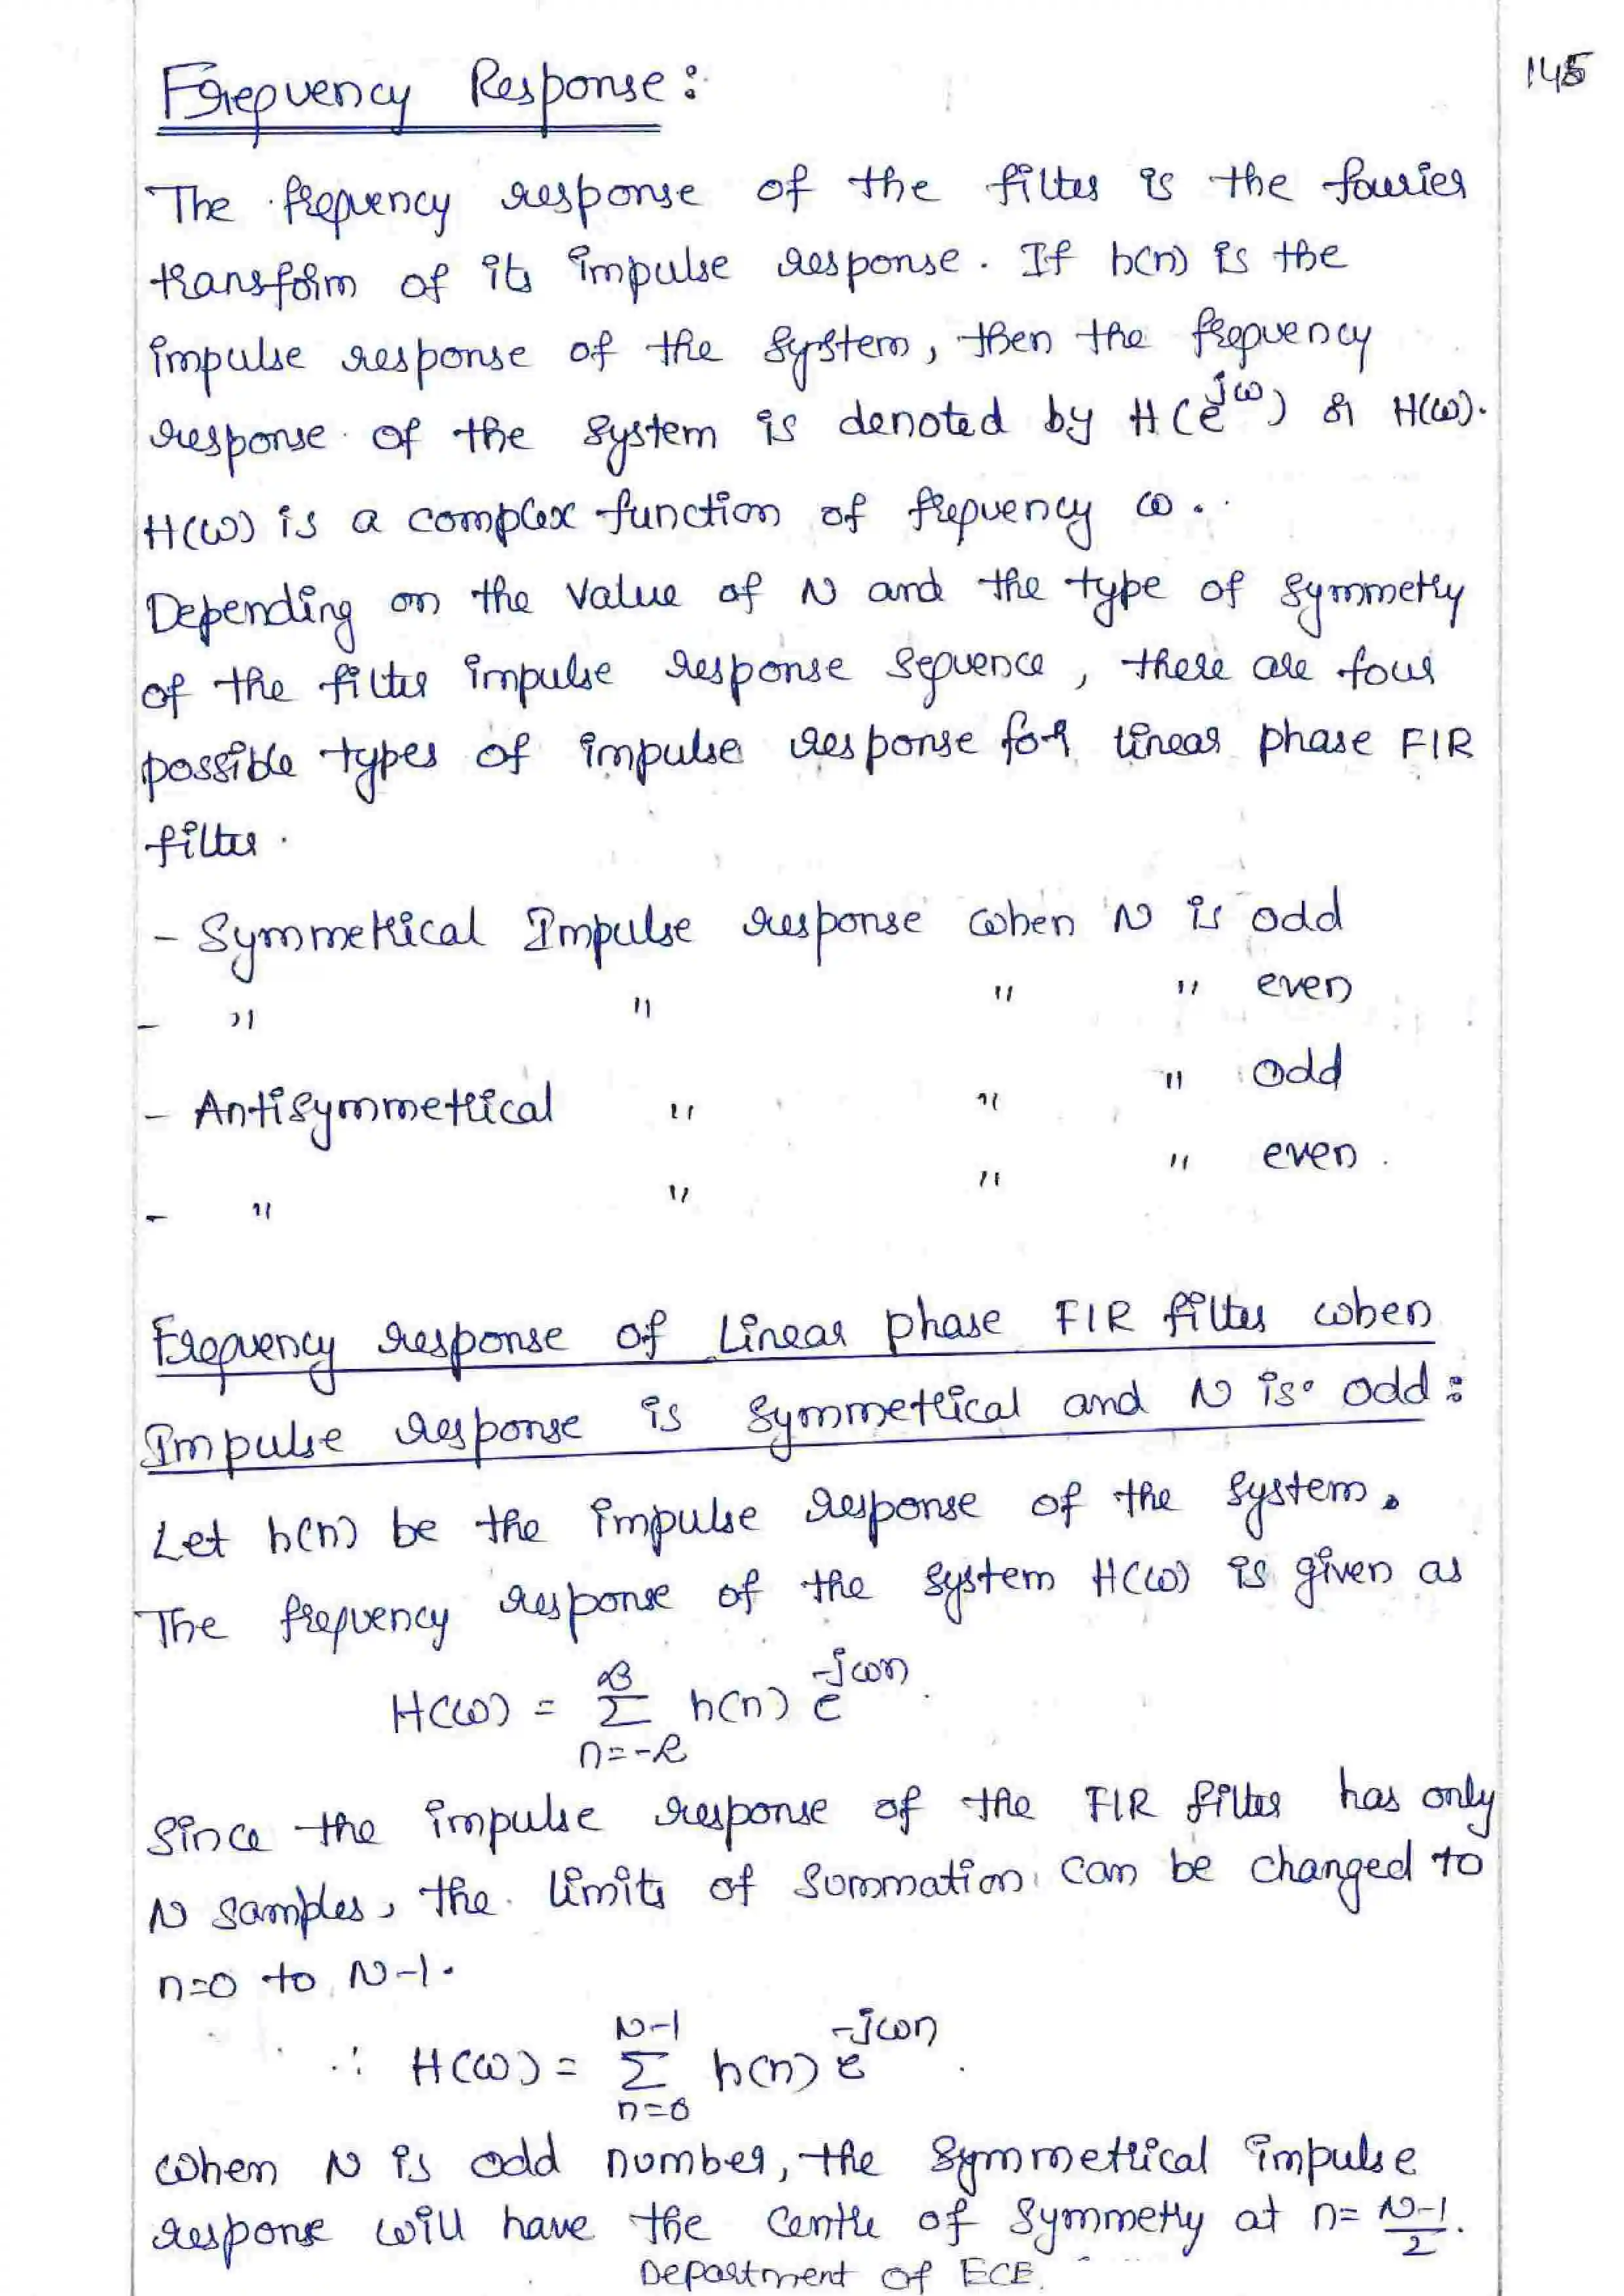 145
Frequency Response:
The frequency response of the filter is the fourier
transform of its impulse response. If h(n) is the
impulse response of the system, then the frequency
response of the system is denoted by H(e^jω) or H(ω).
H(ω) is a complex function of frequency ω.
Depending on the value of N and the type of symmetry
of the filter impulse response sequence, there are four
possible types of impulse response for linear phase FIR
filter.
- Symmetrical Impulse response when N is odd
- " " " " even
- Antisymmetrical " " " odd
- " " " " even.
Frequency response of Linear phase FIR filter when
Impulse response is symmetrical and N is odd:
Let h(n) be the impulse response of the system.
The frequency response of the system H(ω) is given as
H(ω) = ∑_{n=-∞}^{∞} h(n) e^{-jωn}
Since the impulse response of the FIR filter has only
N samples, the limits of summation can be changed to
n=0 to N-1.
∴ H(ω) = ∑_{n=0}^{N-1} h(n) e^{-jωn}.
when N is odd number, the symmetrical impulse
response will have the centre of symmetry at n= (N-1)/2.
Department of ECE.